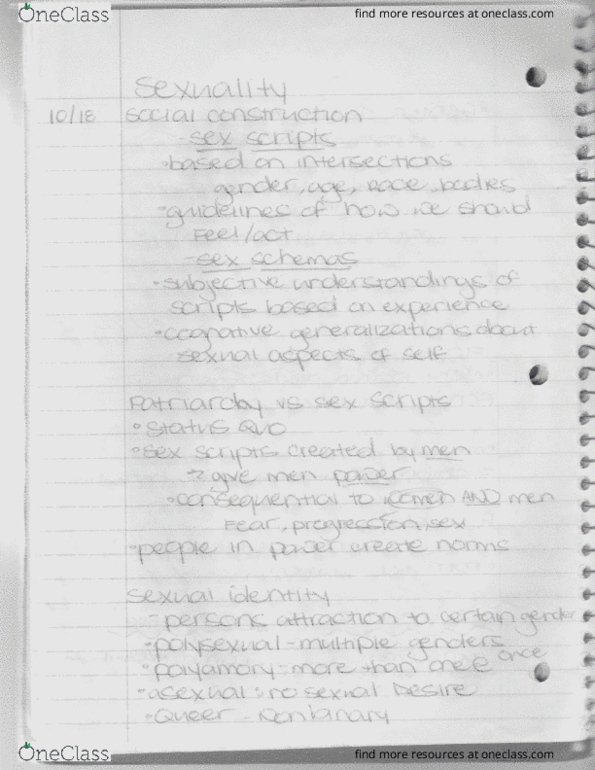 OneClass
find more resources at oneclass.com
Sexuality
10/18 social construction
-sex scripts
•based on intersections
gender, age, race, bodies
-guidelines of how we should
Feel/act
-sex schemas
•subjective understandings of
scripts based on experience
•cognative generalizations about
sexual aspects of self
Patriarchy vs sex scripts
• status quo
•sex scripts created by men
→ give men power
•consequential to women AND men
Fear, progression, sex
-people in power create norms
sexual identity
- persons attraction to certain gender
•polysexual - multiple genders
•polyamory - more than one @ once
•asexual : no sexual Desire
•Queer - Nonbinary
OneClass
find more resources at oneclass.com